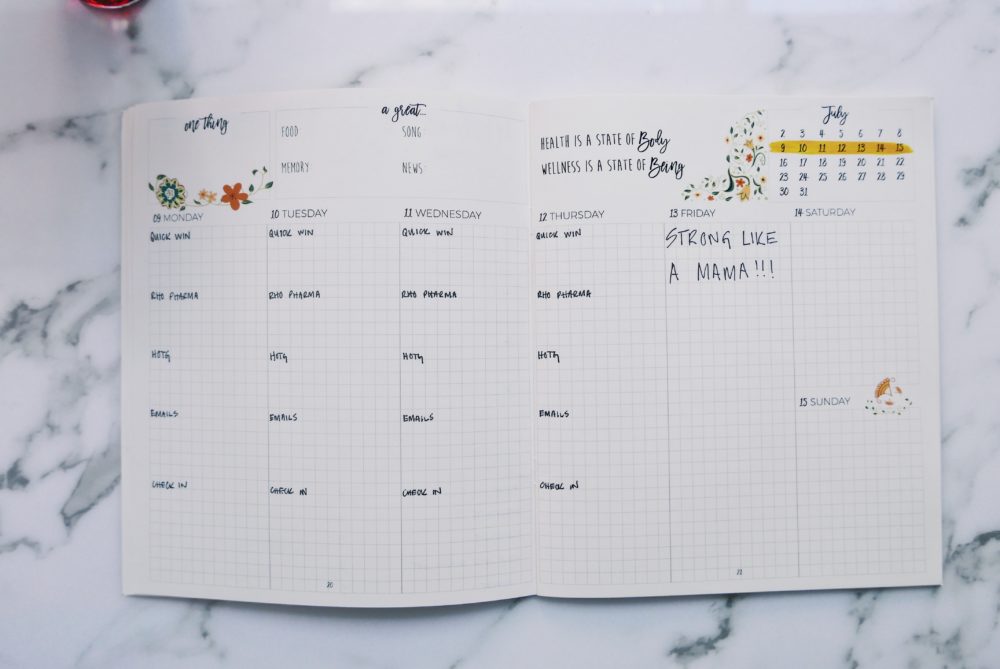 one thing
a great...
FOOD
SONG
MEMORY
NEWS
09 MONDAY
QUICK WIN
RHO PHARMA
HOTG
EMAILS
CHECK IN
10 TUESDAY
QUICK WIN
RHO PHARMA
HOTG
EMAILS
CHECK IN
11 WEDNESDAY
QUICK WIN
RHO PHARMA
HOTG
EMAILS
CHECK IN
20
HEALTH IS A STATE OF Body
WELLNESS IS A STATE OF Being
July
2 3 4 5 6 7 8
9 10 11 12 13 14 15
16 17 18 19 20 21 22
23 24 25 26 27 28 29
30 31
12 THURSDAY
QUICK WIN
RHO PHARMA
HOTG
EMAILS
CHECK IN
13 FRIDAY
STRONG LIKE
A MAMA!!!
14 SATURDAY
15 SUNDAY